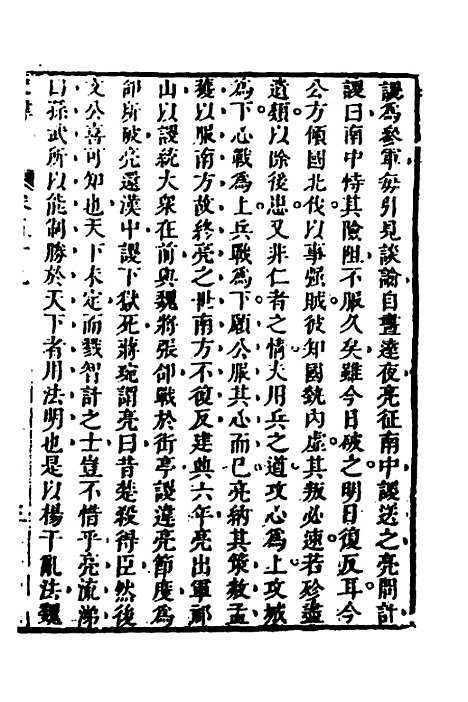 謖爲參軍每引見談論自晝達夜亮征南中謖送之亮問計
謖曰南中恃其險阻不服久矣雖今日破之明日復反耳今
公方傾國北伐以事强賊彼知國銃內虛其叛必速若殄盡
遺類以除後患又非仁者之情夫用兵之道攻心爲上攻城
爲下心戰爲上兵戰爲下願公服其心而已亮納其策赦孟
獲以服南方故終亮之世南方不復反建興六年亮出軍祁
山以謖統大衆在前與魏將張郃戰於街亭謖違亮節度爲
郃所破亮還漢中謖下獄死蔣琬謂亮曰昔楚殺得臣然後
文公喜可知也天下未定而戮智計之士豈不惜乎亮流涕
曰孫武所以能制勝於天下者用法明也是以楊干亂法魏